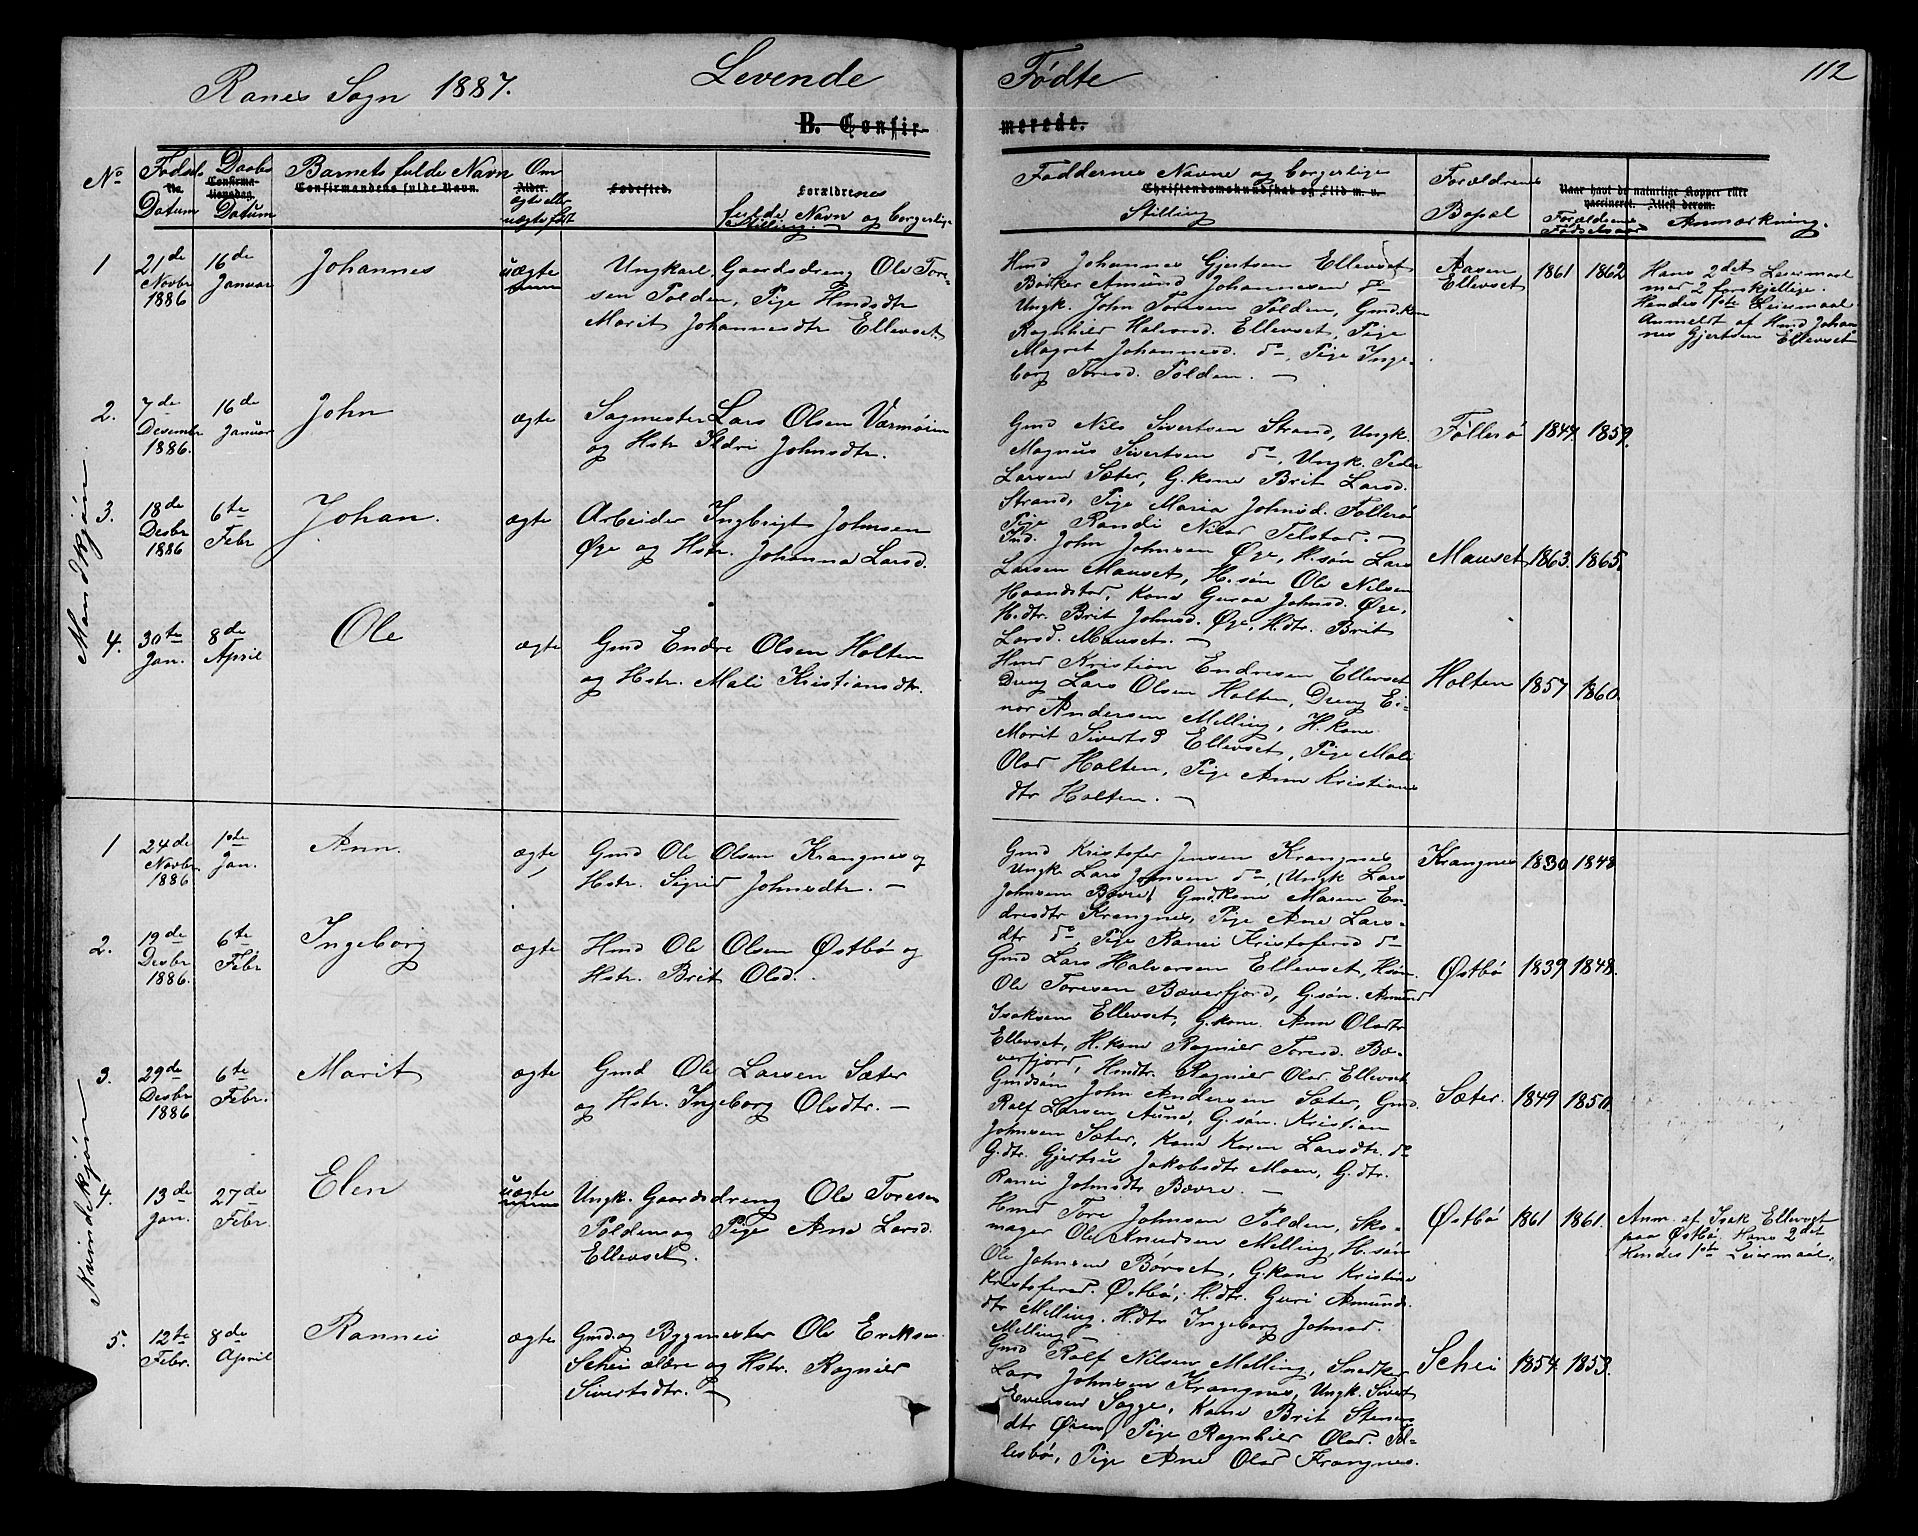 Ranes Sogn 1887. Levende Fødte 112
B. Confirmerede.
No Fødsels Datum Daabs Datum Barnets fulde Navn Om ægte eller uægte født
Confirmationsdag. Confirmandens fulde Navn. Alder. Fødested. Forældrenes
fulde Navn og borgerlige Stilling.
Faddernes Navne og borgerlige
Christendomskundskab og Flid m. v.
Stilling
Forældrenes
Bopæl
Naar havt de naturlige Kopper eller
vaccineret. Attest derom.
Forældrenes Fødselsaar Anmærkning.
Mandkjøn
1 21de Novbr 1886 16de Januar Johannes uægte
Ungkarl, Gaardsdreng Ole Tore-
sen Polden, Pige Hmdsdtr
Marit Johannesdtr Ellevset.
Hmd Johannes Gjertsen Ellevset
Bøtker Amund Johannesen do
Ungk. John Toresen Polden, Gmd.kon
Ragnhild Halvorsd. Ellevset, Pige
Magret Johannesd. do, Pige Inge-
borg Toresd. Polden. —
Aasen Ellevset 1861 1862
Hans 2det Leiermaal
med 2 forskjellige.
Hendes 1ste Leiermaal
Anmeldt af Hmd Johan-
nes Gjertsen Ellevset
2. 7de Desembr 1886. 16de Januar John ægte
Sagmester Lars Olsen Værmøien
og Hstr Ildri Johnsdtr.
Gmd Nils Sivertsen Strand, Ungk.
Magnus Sivertsen do, Ungk. Peder
Larsen Sæter, G.kone Brit Larsd.
Strand, Pige Maria Johnsd. Follerø
Pige Randi Nilsd Telstad. —
Follerø 1847. 1859.
3. 18de Desbr 1886 6te Febr Johan. ægte
Arbeider Ingbrigt Johnsen
Øye og Hstr. Johanna Larsd.
Ind. John Johnsen Øye, H.søn Lars
Larsen Mauset, H.søn Ole Nilsen
Haandstad, Kone Guroa Johnsd. Øye,
H.dtr. Brit Johnsd. Øye, H.dtr. Brit
Larsd. Mauset. —
Mauset 1863. 1865.
4. 30te Jan. 8de April Ole ægte
Gmd Endre Olsen Holten
og Hstr. Mali Kristiansdtr.
Hmd Kristian Endresen Ellevset
Dreng Lars Olsen Holten, Dreng Ei-
nar Andersen Melling, H.kone
Marit Sivertsd Ellevset, Pige Mali
Olsd Holten, Pige Ann Kristians
dtr Holten. —
Holten 1857 1860.
Kvindekjøn
1 24de Novbr 1886 1ste Jan. Ann. ægte
Gmd Ole Olsen Krangnes og
Hstr. Sigrid Johnsdtr. —
Gmd Kristofer Jensen Krangnes
Ungk. Lars Johnsen do, (Ungk Lars
Johnsen Bævre) Gmd.kone Maren En-
dresdtr Krangnes, Pige Ane Lars-
dtr do, Pige Ranei Kristofersd do
Krangnes 1830 1848
2. 19de Desbr 1886. 6te Febr Ingeborg ægte
Hmd Ole Olsen Østbø og
Hstr. Brit Olsd.
Gmd Lars Halvorsen Ellevset, H.søn.
Ole Toresen Bæverfjord, G.søn. Amund
Isaksen Ellevset, G.kone. Ann Olsdtr
Ellevset, H.kone Ragnild Toresd. Bæ-
verfjord, Hmdtr. Ragnild Olsd. Ellevset
Østbø 1839 1848.
3. 29de Desbr 1886 6te Febr. Marit ægte
Gmd Ole Larsen Sæter
og Hstr. Ingeborg Olsdtr. —
Gmdsøn John Andersen Sæter, Gmd.
Ralf Larsen Aune, G.søn. Kristian
Johnsen Sæter, Kone Karen Larsdtr. do
G.dtr. Gjertru Jakobsdtr Moen, G.dtr.
Ranei Johnsdtr Bævre. —
Sæter. 1849 1850.
4. 13de Jan. 27de Febr. Elen uægte
Ungk. Gaardsdreng Ole Toresen
Polden og Pige Ane Larsd.
Ellevset.
Hmd Tore Johnsen Polden, Sko-
mager Ole Knudsen Melling, H.søn
Ole Johnsen Børset, G.kone Kristine
Kristofersd. Østbø, H.dtr. Guri Amunds
dtr Melling. H.dtr Ingeborg Johnsd.
Melling —
Østbø 1861 1861.
Anm. af Isak Ellevset
paa Østbø. Hans 2det
Hendes 1ste Leiermaal.
5. 12te Febr. 8de April Rannei ægte
Gmd. og Bygmester Ole Eriksen
Schei ældre og Hstr. Ragnild
Sivertsdtr. —
Gmd Ralf Nilsen Melling, Snedker
Lars Johnsen Krangnes, Ungk. Sivert
Evensen Sagge, Kone Brit Steners
dtr Øien, Pige Ragnhild Olsd. Tel-
lesbø, Pige Ane Olsd Krangnes.
Schei 1854. 1853.